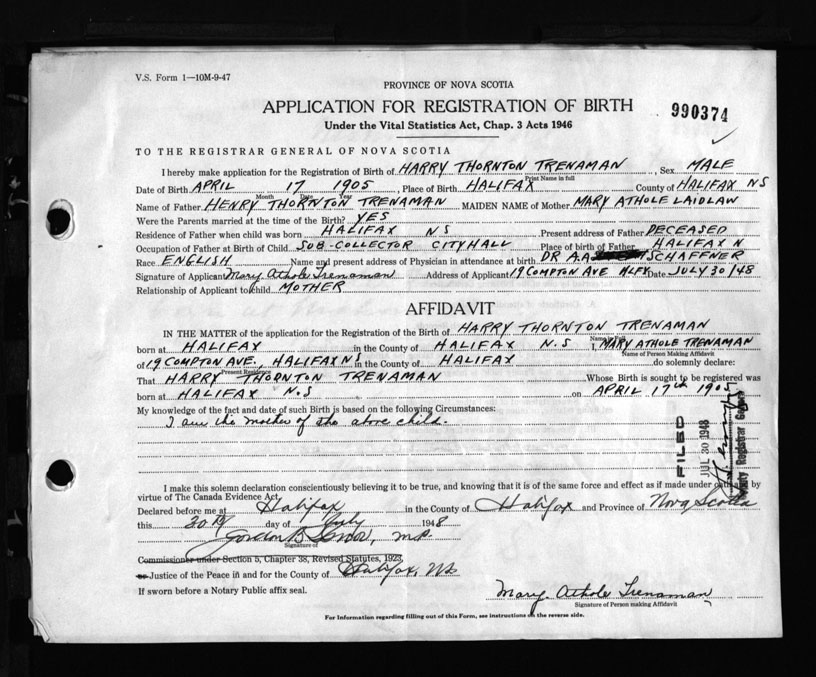 V.S. Form 1—10M-9-47
PROVINCE OF NOVA SCOTIA
APPLICATION FOR REGISTRATION OF BIRTH
990374
Under the Vital Statistics Act, Chap. 3 Acts 1946
TO THE REGISTRAR GENERAL OF NOVA SCOTIA
I hereby make application for the Registration of Birth of HARRY THORNTON TRENAMAN, Sex MALE
Print Name in full
Date of Birth APRIL 17 1905, Place of Birth HALIFAX County of HALIFAX NS
Month Date Year
Name of Father HENRY THORNTON TRENAMAN MAIDEN NAME of Mother MARY ATHOLE LAIDLAW
Were the Parents married at the time of the Birth? YES
Residence of Father when child was born HALIFAX NS Present address of Father DECEASED
Occupation of Father at Birth of Child SUB-COLLECTOR CITY HALL Place of birth of Father HALIFAX N
Race ENGLISH Name and present address of Physician in attendance at birth DR A.A. SCHAFFNER
Signature of Applicant Mary Athole Trenaman Address of Applicant 19 COMPTON AVE HLFX Date JULY 30/48
Relationship of Applicant to child MOTHER
AFFIDAVIT
IN THE MATTER of the application for the Registration of the Birth of HARRY THORNTON TRENAMAN
born at HALIFAX in the County of HALIFAX N.S I, MARY ATHOLE TRENAMAN
Name of Person Making Affidavit
of 19 COMPTON AVE., HALIFAX NS in the County of HALIFAX do solemnly declare:
Present Residence
That HARRY THORNTON TRENAMAN Whose Birth is sought to be registered was
born at HALIFAX N.S on APRIL 17th 1905
My knowledge of the fact and date of such Birth is based on the following Circumstances:
I am the mother of the above child.
FILED
JUL 30 1948
Registrar General
I make this solemn declaration conscientiously believing it to be true, and knowing that it is of the same force and effect as if made under oath and by
virtue of The Canada Evidence Act.
Declared before me at Halifax in the County of Halifax and Province of Nova Scotia
this 30th day of July 1948
Gordon B.
Signature of
Commissioner under Section 5, Chapter 38, Revised Statutes, 1923,
or Justice of the Peace in and for the County of Halifax, NS
If sworn before a Notary Public affix seal.
Mary Athole Trenaman
Signature of Person making Affidavit
For Information regarding filling out of this Form, see instructions on the reverse side.